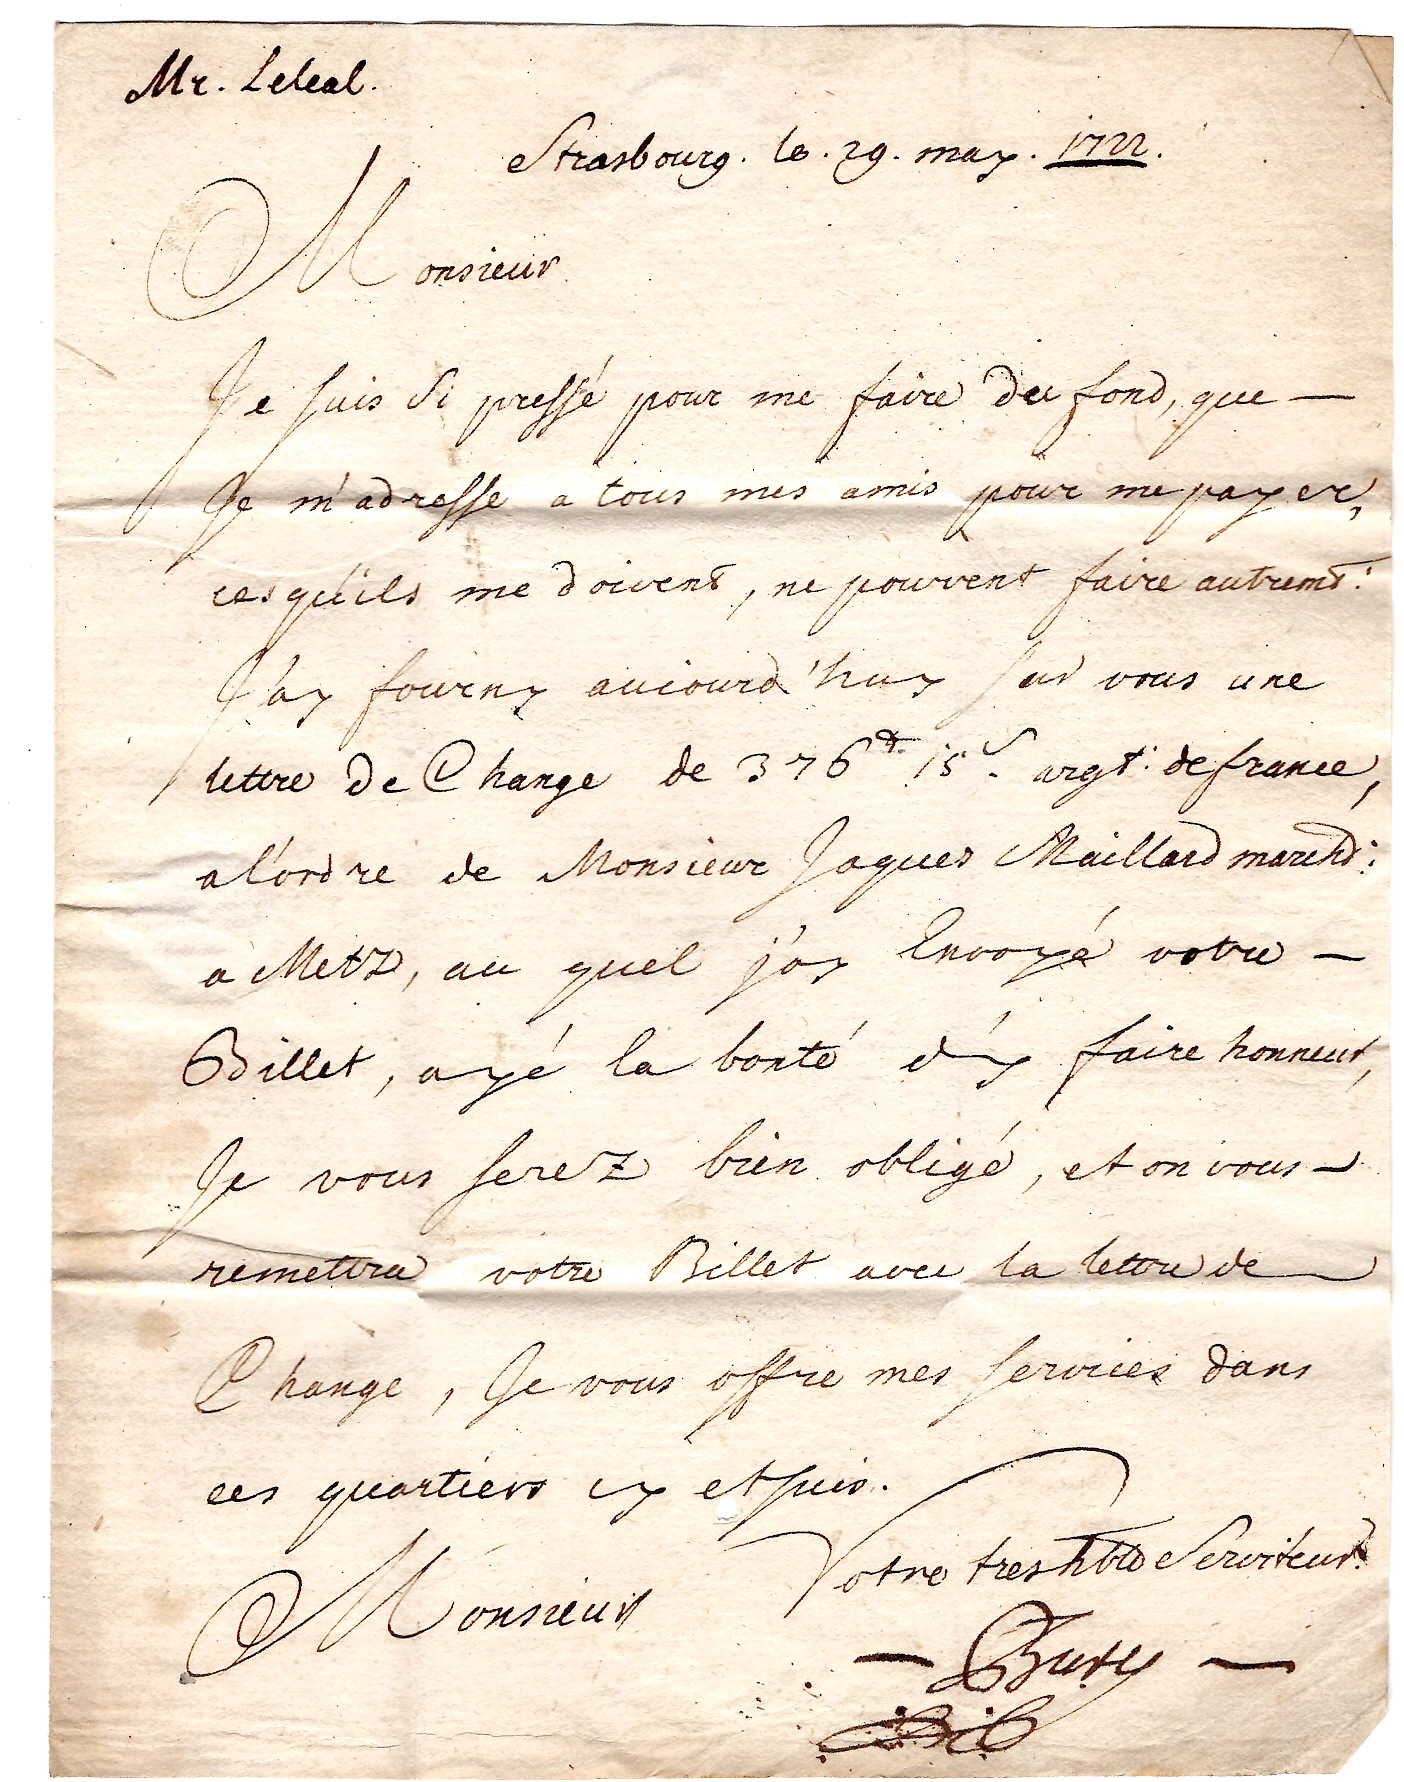 Mr. Leleal.
Strasbourg. le. 29. may. 1722.
Monsieur
Je suis si pressé pour me faire du fond, que —
Je m'adresse a tous mes amis pour me payer,
ces qu'ils me doivent, ne pouvent faire autremt:
J'ay fourny auiourd'huy sur vous une
lettre de Change de 376 15 s. argt: de france,
a l'ordre de Monsieur Jaques Maillard marchd:
a Metz, au quel j'ay Envoyé votre —
Billet, ayé la bonté d'y faire honneur,
Je vous serez bien obligé, et on vous —
remettra votre Billet avec la lettre de —
Change, Je vous offre mes services dans
ces quartiers cy et suis.
Votre tres hble Serviteur
Monsieur